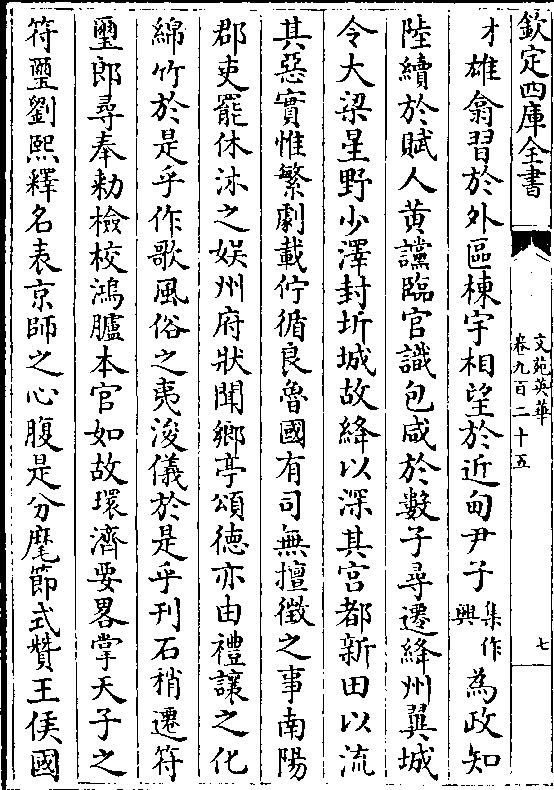 欽定四庫全書
文苑英華
卷九百二十五
七
才雄翕習於外區棟宇相望於近甸尹子集作興為政知
陸續於賦人黄讜臨官識包咸於數子尋遷絳州翼城
令大梁星野少澤封圻城故絳以深其宫都新田以流
其惡實惟繁劇載佇循良魯國有司無擅徵之事南陽
郡吏罷休沐之娱州府狀聞鄉亭頌德亦由禮讓之化
綿竹於是乎作歌風俗之夷浚儀於是乎刊石稍遷符
璽郎尋奉勅檢校鴻臚本官如故環濟要畧掌天子之
符璽劉熙釋名表京師之心腹是分麾節式贊王侯國